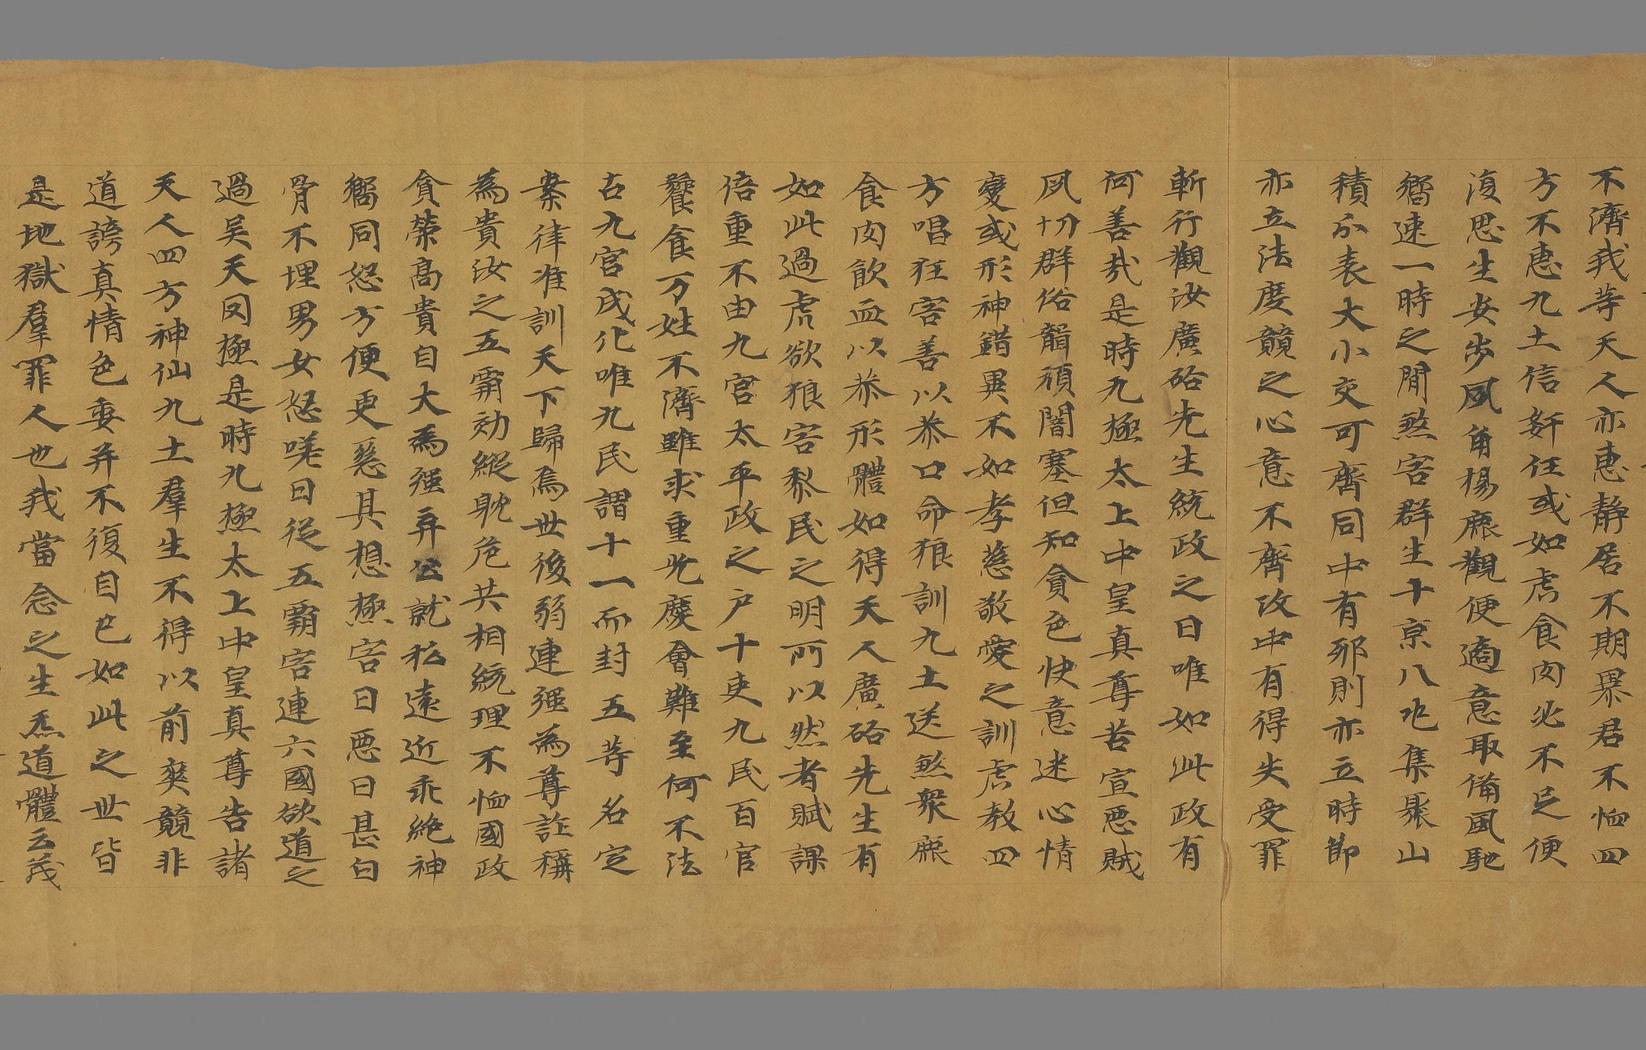 不濟我等天人亦惠靜居不期暴君不恤四
方不惠九土信奸任或如虎食肉必不足便
復思生安步風角楊麃觀便適意取備風馳
嚮速一時之間煞害群生十京八兆集聚山
積尒表大小交可齊同中有邪則亦立時節
亦立法度競之心意不齊改中有得失受罪
斬行觀汝廣硌先生統政之日唯如此政有
何善哉是時九極太上中皇真尊苦宣惡賊
風切群俗韻頑闇塞但知貪色快意迷心情
變或形神錯異不如孝慈敬愛之訓虎教四
方唱狂害善以恭口命狼訓九土送煞衆麃
食肉飲血以恭形體如得天人廣硌先生有
如此過虎欲狼害黎民之明所以然者賦課
倍重不由九官太平政之户十吏九民百官
饕食万姓不濟雖求重光慶會難至何不法
古九官成化唯九民謂十一而封五等名定
案律准訓天下歸焉世後弱連强為尊詐稱
為貴汝之五霸効縱躭危共相統理不恤國政
貪榮高貴自大為强弃公就私遠近乖絶神
嚮同怨方便更慈具想極害日惡日甚白
骨不埋男女怨嘆日從五霸害連六國欲道之
過吴天罔極是時九極太上中皇真尊告諸
天人四方神仙九土羣生不得以前爽競非
道謗真情色委弃不復自已如此之世皆
是地獄羣罪人也我當念之生炁道體云茂